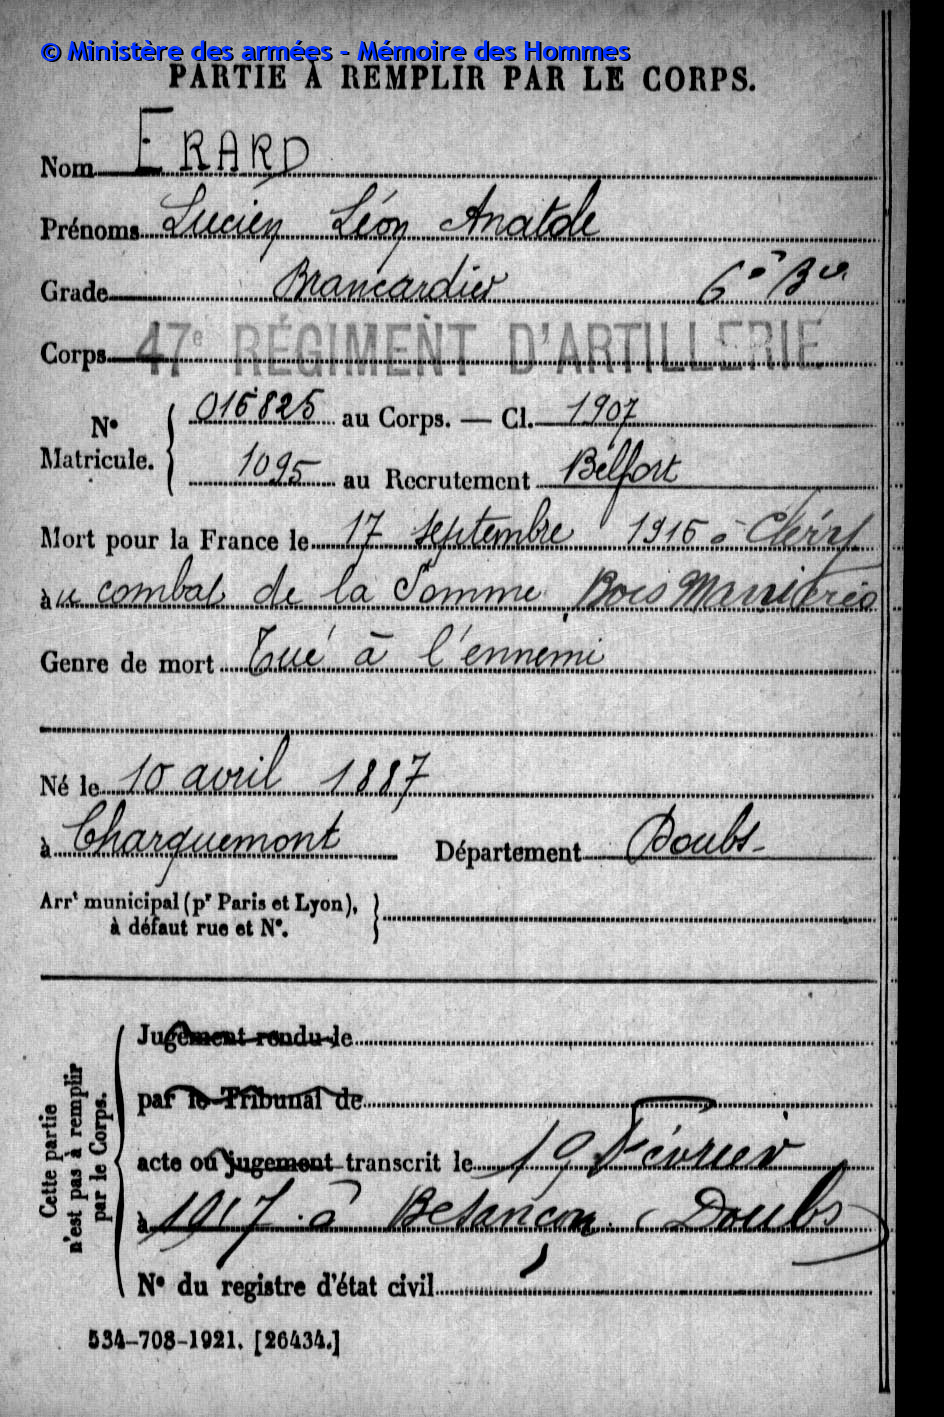 © Ministère des armées - Mémoire des Hommes
PARTIE À REMPLIR PAR LE CORPS.
Nom ERARD
Prénoms Lucien Léon Anatole
Grade Brancardier 6e Bie
Corps 47e RÉGIMENT D'ARTILLERIE
No Matricule. 015825 au Corps. — Cl. 1907
1095 au Recrutement Belfort
Mort pour la France le 17 septembre 1916 à Cléry
au combat de la Somme Bois
Genre de mort Tué à l'ennemi
Né le 10 avril 1887
à Charquemont Département Doubs
Arrt municipal (pr Paris et Lyon),
à défaut rue et No.
Cette partie
n'est pas à remplir
par le Corps.
Jugement rendu le
par le Tribunal de
acte ou jugement transcrit le 19 Février
à 1917 à Besançon (Doubs)
No du registre d'état civil
534-708-1921. [26434.]